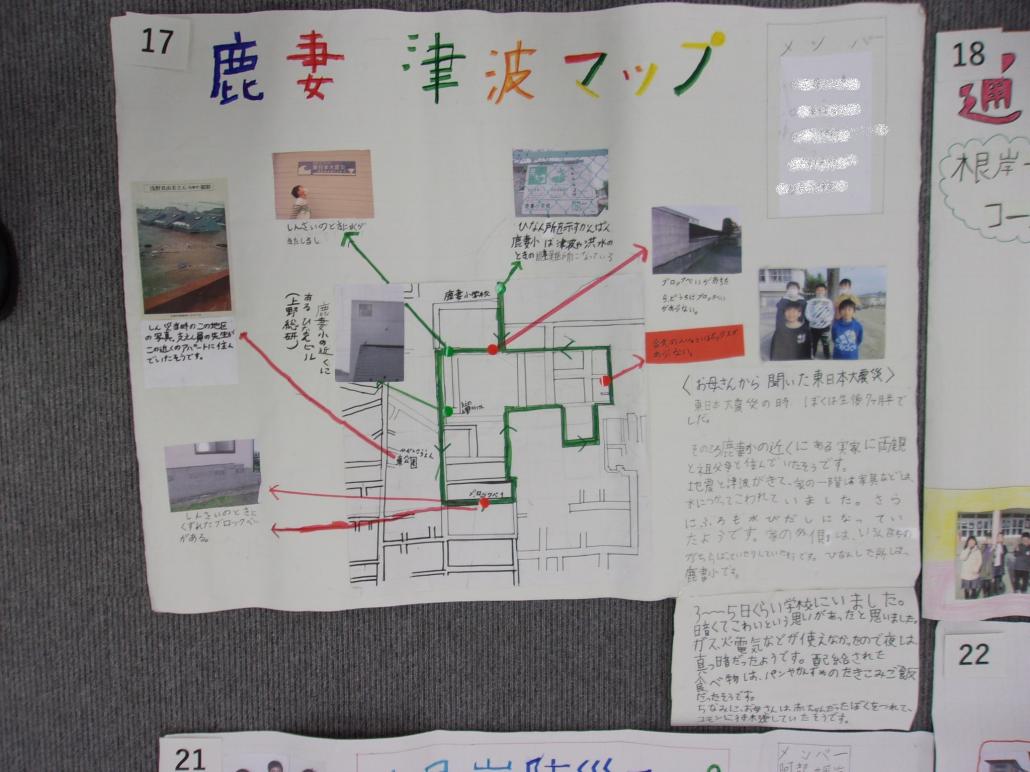 17
鹿妻 津波マップ
メンバー
18
通
根岸
コー
浅野
東日本大震災
しんさいのときに水が
きたしるし
ひなん所を示すかんばん
鹿妻小は津波や洪水の
ときの避難所になっている
ブロックべいがあちら
がありない。
しん災当時のこの地区
の写真。支えん員の先生が
この近くのアパートに住ん
でいたそうです。
鹿妻小の近くに
あるひなんビル
(上野総研)
鹿妻小学校
東公園
ブロックべい
しんさいのときに
くずれたブロックべい
がある。
〈お母さんから聞いた東日本大震災〉
東日本大震災の時 ぼくは生後
でした。
そのころ鹿妻小の近くにある実家に両親
と祖父母と住んでいたそうです。
地震と津波がきて、家の一階は家具などは、
水につかってこわれていました。さら
にふろも水びだしになってい
たようです。家の外側は、いろんなもの
がちらばっていたりしていたそうです。ひなんした所は、
鹿妻小です。
3〜5日くらい学校にいました。
暗くてこわいという思いがあったと思いました。
ガス、火、電気などが使えなかったので夜は、
真っ暗だったようです。配給された
食べ物は、パンやかんずめのたきこみご飯
だったそうです。
ちなみに、お母さんは赤ちゃんだったぼくをつれて、
21
22
メンバー